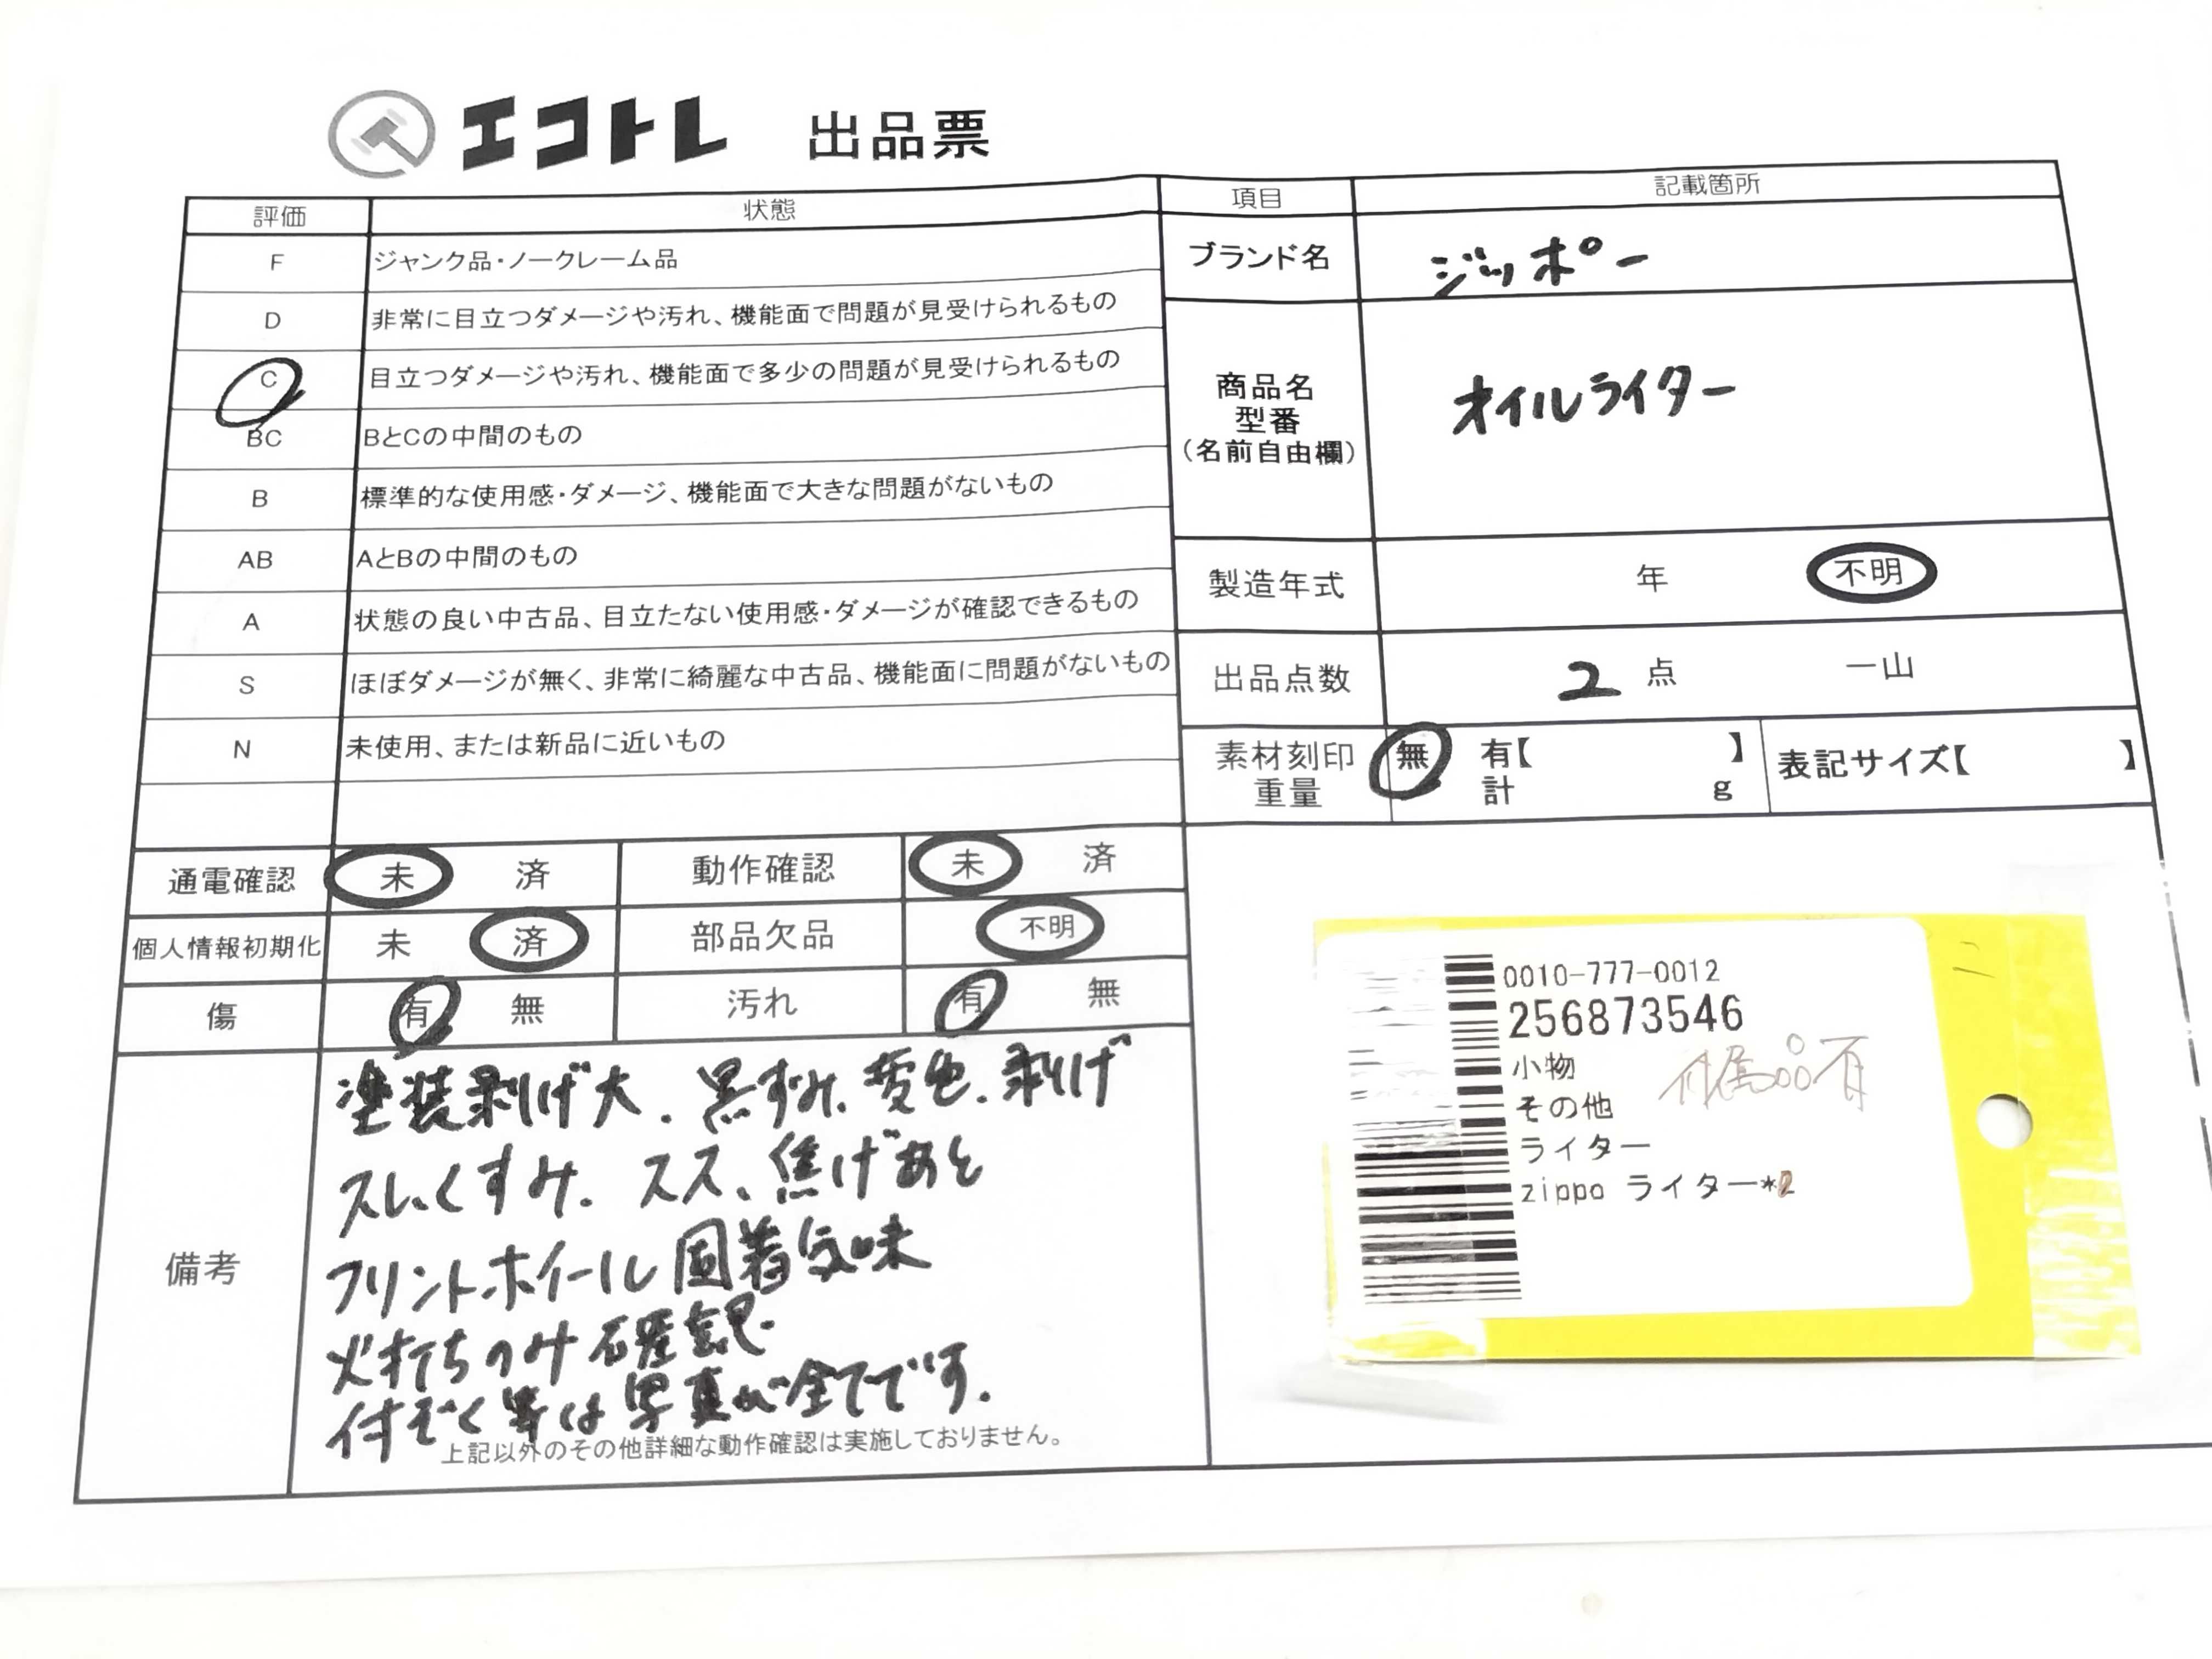 エコトレ 出品票
評価 状態
F ジャンク品・ノークレーム品
D 非常に目立つダメージや汚れ、機能面で問題が見受けられるもの
C 目立つダメージや汚れ、機能面で多少の問題が見受けられるもの
BC BとCの中間のもの
B 標準的な使用感・ダメージ、機能面で大きな問題がないもの
AB AとBの中間のもの
A 状態の良い中古品、目立たない使用感・ダメージが確認できるもの
S ほぼダメージが無く、非常に綺麗な中古品、機能面に問題がないもの
N 未使用、または新品に近いもの
通電確認 未 済 動作確認 未 済
個人情報初期化 未 済 部品欠品 不明
傷 有 無 汚れ 有 無
備考
塗装剥げ大、黒ずみ、変色、剥げ
スレ、くすみ、スス、焦げあと
フリントホイール固着気味
火打ちのみ確認
付ぞく等は写真が全てです。
上記以外のその他詳細な動作確認は実施しておりません。
項目 記載箇所
ブランド名 ジッポー
商品名
型番
(名前自由欄)
オイルライター
製造年式 年 不明
出品点数 2 点 一山
素材刻印 無 有【 】 表記サイズ【 】
重量 計 g
0010-777-0012
256873546
小物
付属品有
その他
ライター
zippo ライター*2